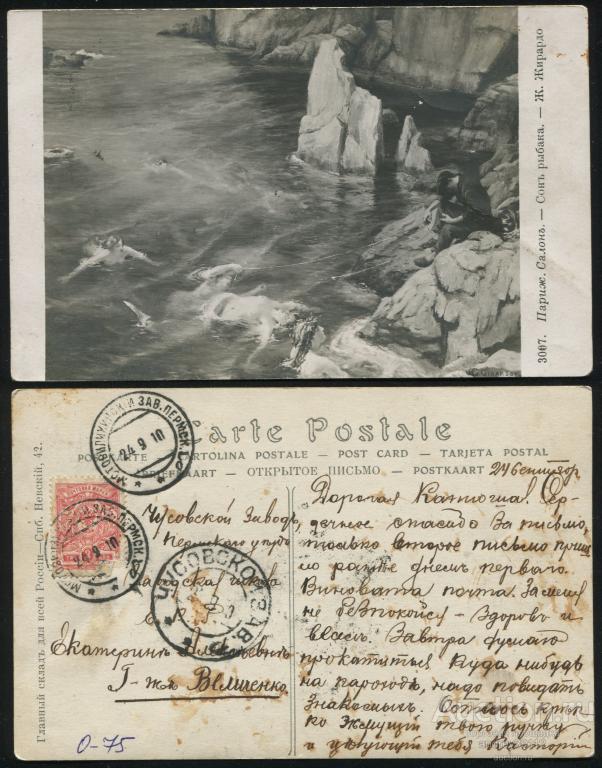 3007. Париж. Салонъ. — Сонъ рыбака. — Ж. Жирардо
Carte Postale
CARTOLINA POSTALE – POST CARD – TARJETA POSTAL
ОТКРЫТОЕ ПИСЬМО – POSTKAART
Главный складъ для всей Россіи—Спб. Невскій, 42.
МОТОВИЛИХИНСКІЙ ЗАВ. ПЕРМСК.
24 9 10
24 9 10
ЧУСОВСКОЙ ЗАВ.
Чусовской Заводъ
Пермской губ
Екатеринѣ
Г-жѣ Величенко
О-75
24 Сентябр
Дорогая Катюша! Сер-
дечное спасибо за письмо,
только второе письмо приш
ло ранее днем первого.
Виновата почта. За меня
не безпокойся – здоров и
весел. Завтра думаю
прокатиться куда нибудь
на пароходе, надо повидать
знакомых. Остаюсь креп
ко жмущий твою ручку
и целующий тебя